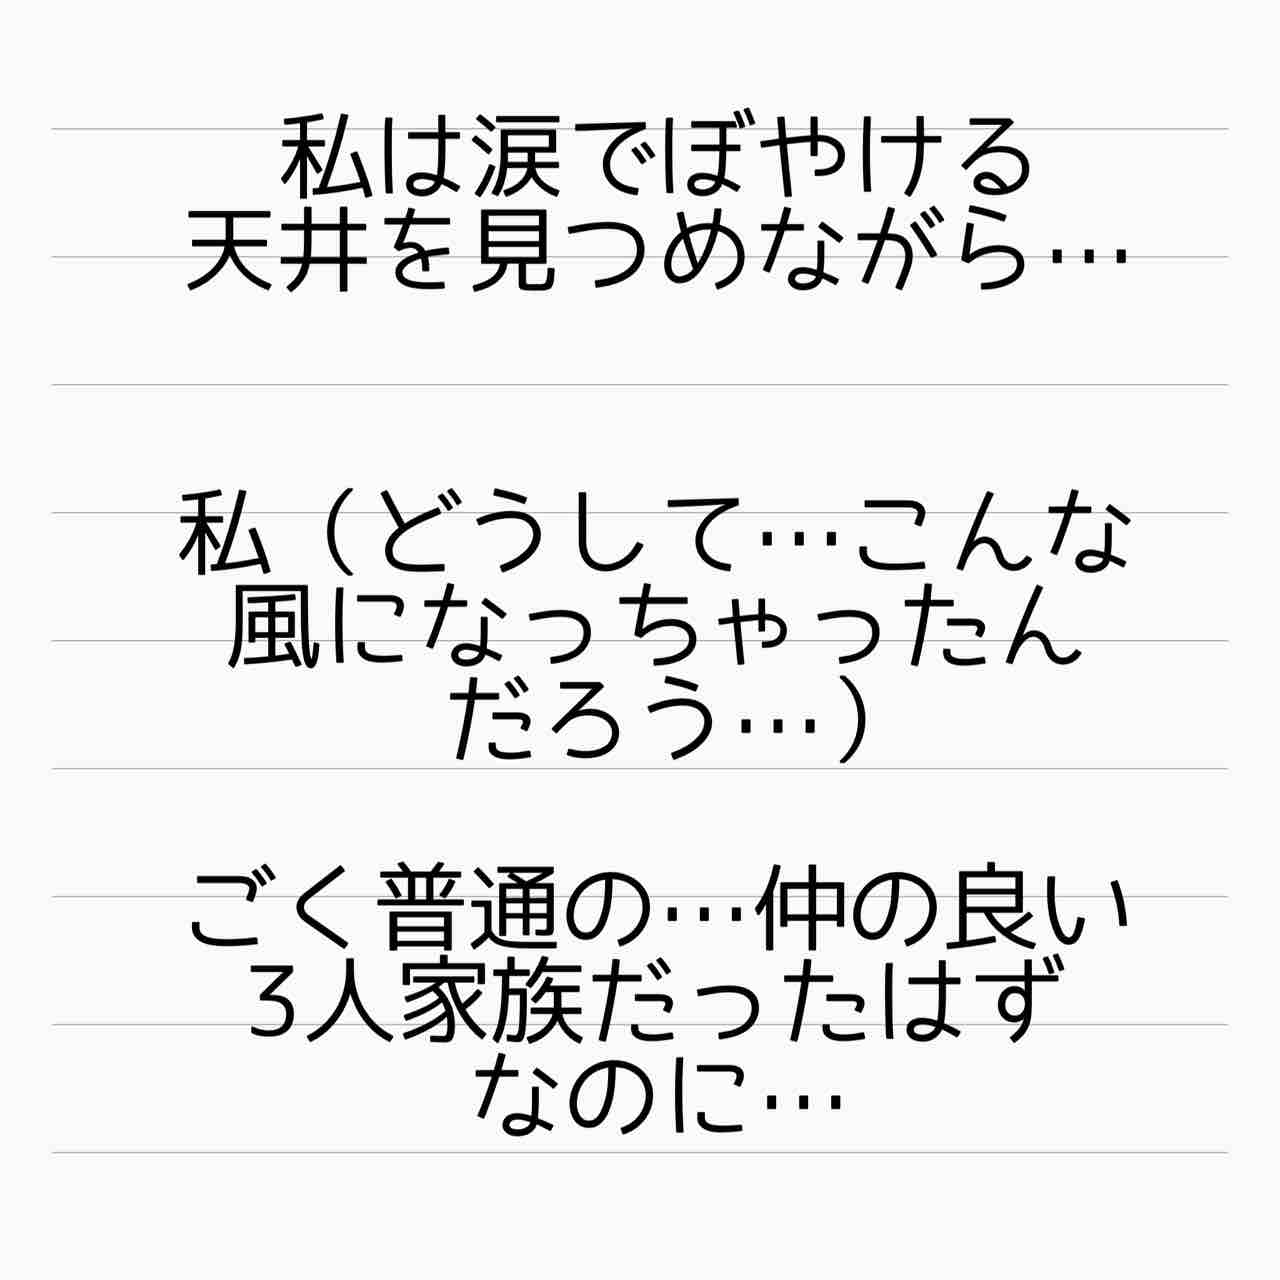 私は涙でぼやける
天井を見つめながら…
私（どうして…こんな
風になっちゃったん
だろう…）
ごく普通の…仲の良い
3人家族だったはず
なのに…